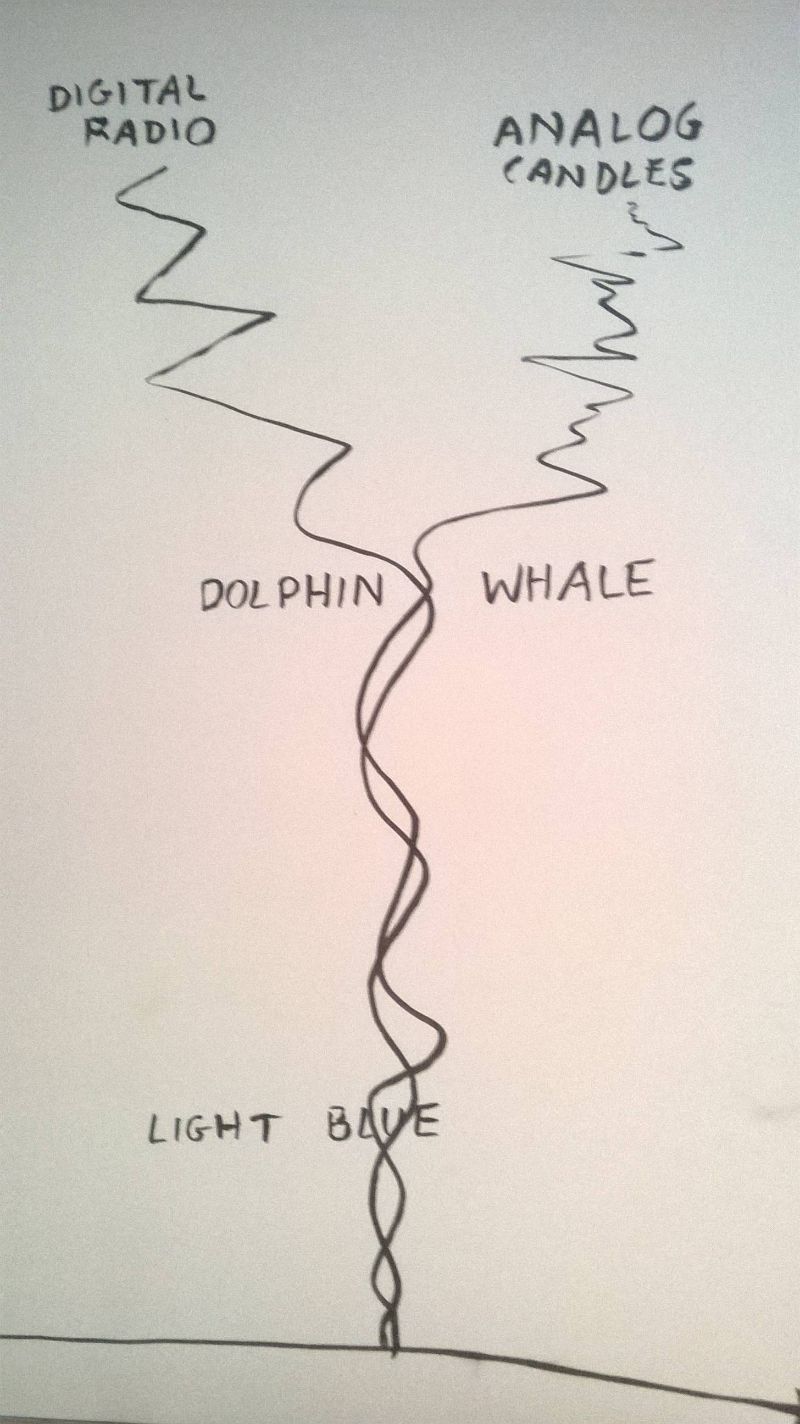 DIGITAL
RADIO
ANALOG
CANDLES
DOLPHIN WHALE
LIGHT BLUE